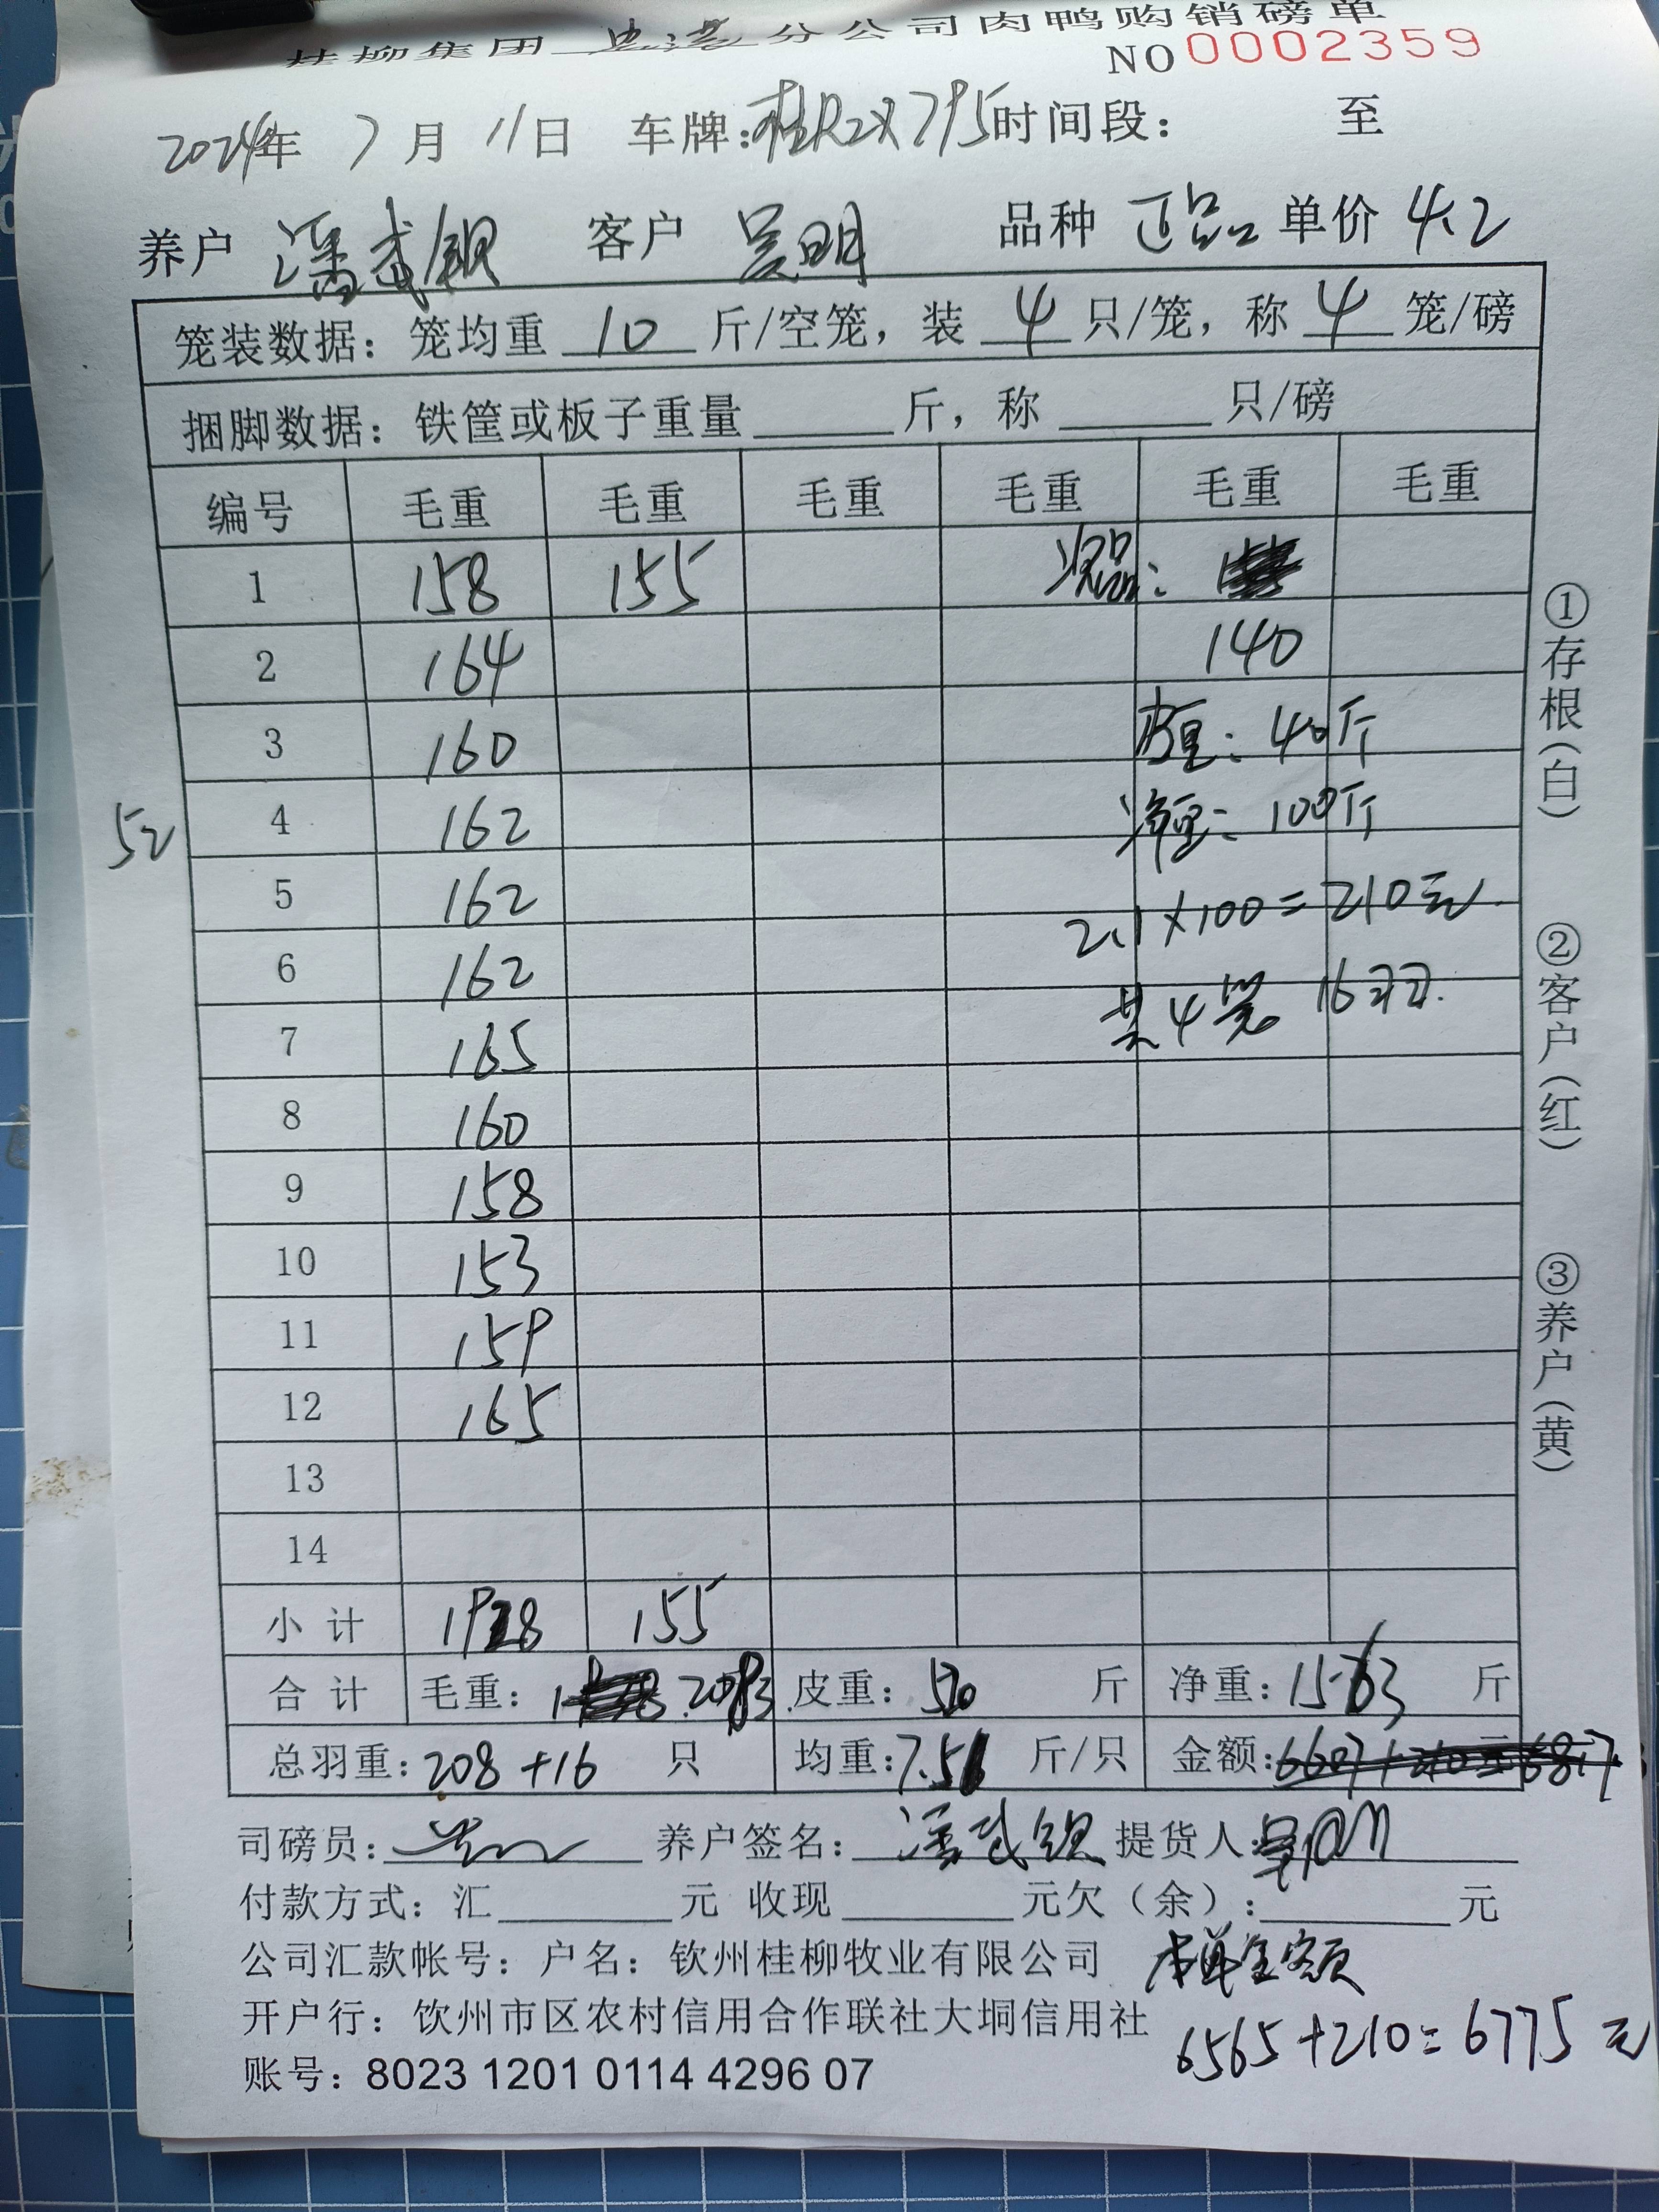 桂柳集团 分公司肉鸭购销磅单
NO 0002359
2024年 7月 11日 车牌:桂R2X795 时间段: 至
养户 潘武钡 客户 吴明 品种 正品 单价 4.2
笼装数据: 笼均重 10 斤/空笼, 装 4 只/笼, 称 4 笼/磅
捆脚数据: 铁筐或板子重量 斤, 称 只/磅
编号 毛重 毛重 毛重 毛重 毛重 毛重
1 158 155 次品:
2 164 140
3 160 皮重: 40斤
52
4 162 净重: 100斤
5 162 2.1×100=210元
6 162 共4笼 16只
7 165
8 160
9 158
10 153
11 159
12 165
13
14
小计 1928 155
合计 毛重: 2083 皮重: 520 斤 净重: 1563 斤
总羽重: 208+16 只 均重: 7.51 斤/只 金额: 6607+210=6817
司磅员: 养户签名: 潘武钡 提货人 吴明
付款方式: 汇 元 收现 元欠(余): 元
公司汇款帐号: 户名: 钦州桂柳牧业有限公司
本单金额
开户行: 钦州市区农村信用合作联社大垌信用社
6565+210=6775元
账号: 8023 1201 0114 4296 07
①存根(白)
②客户(红)
③养户(黄)